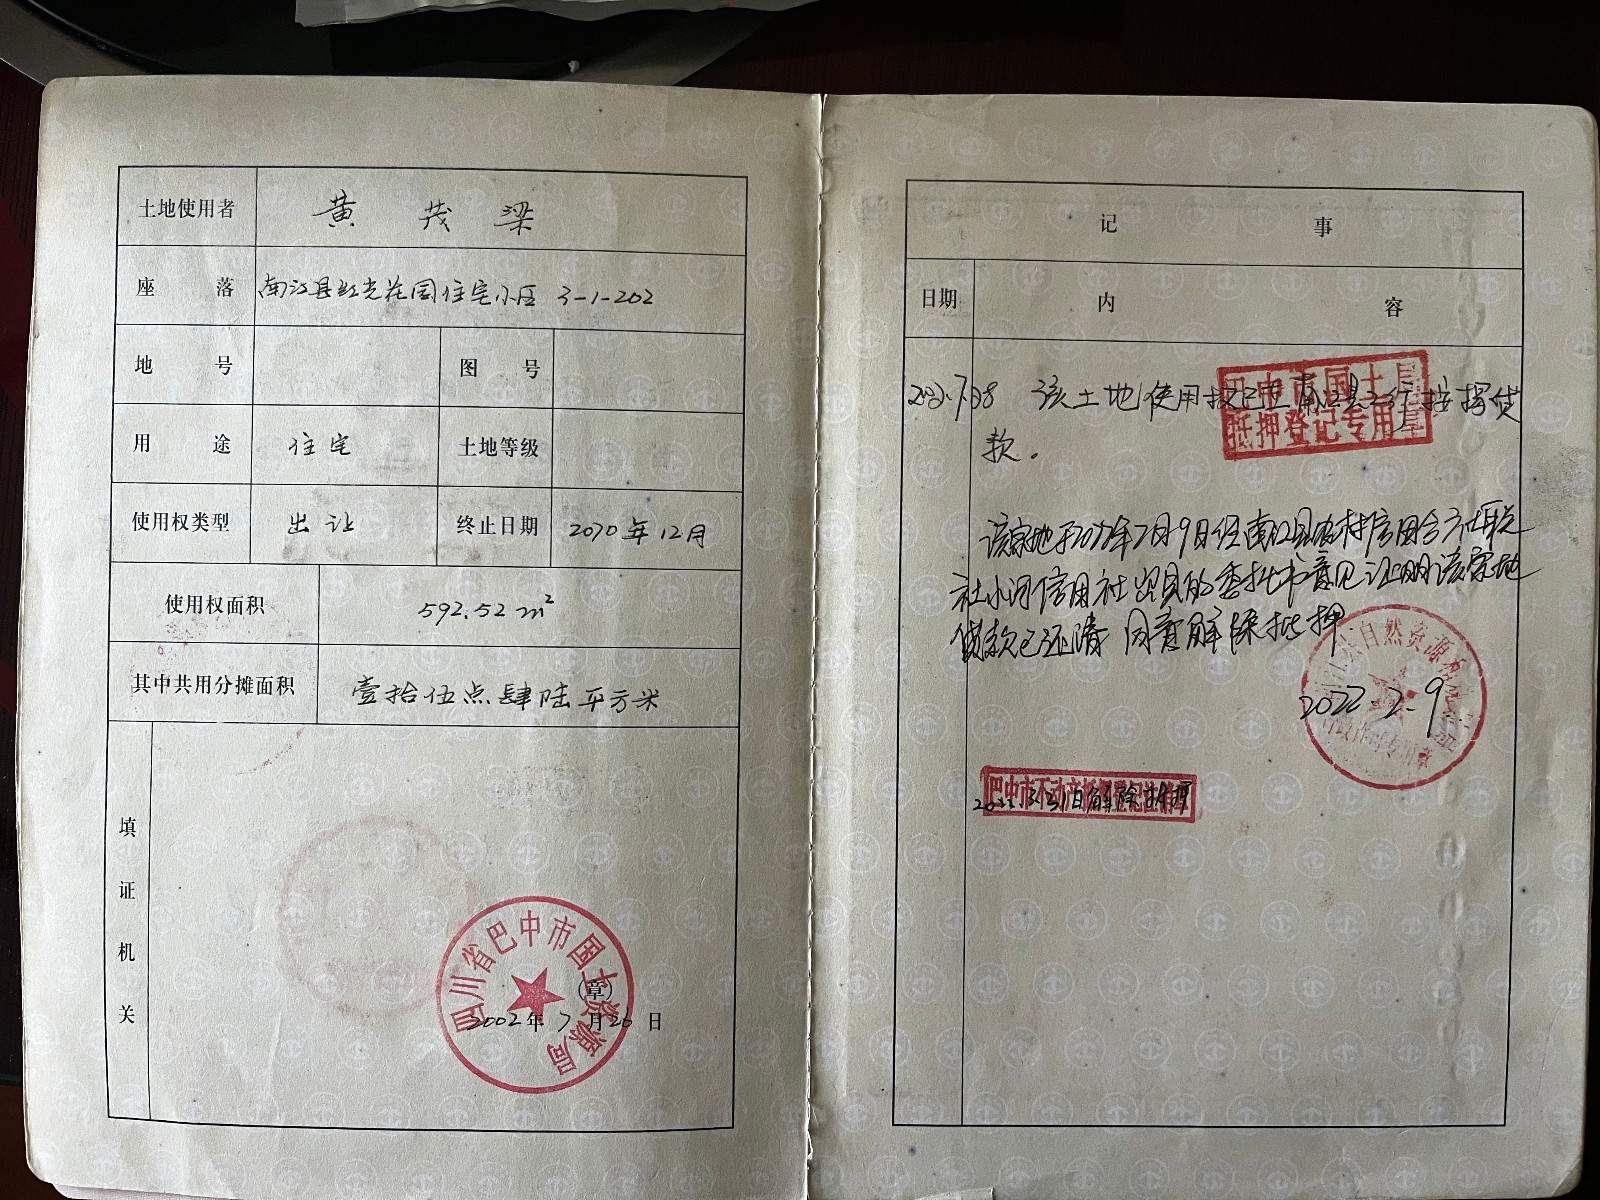 土地使用者 黄茂梁
座落 南江县红光花园住宅小区 3-1-202
地号 图号
用途 住宅 土地等级
使用权类型 出让 终止日期 2070年12月
使用权面积 592.52m²
其中共用分摊面积 壹拾伍点肆陆平方米
填证机关
四川省巴中市国土资源局
(章)
2002年7月26日
记事
日期 内容
该土地使用权已在南江县工行按揭贷
款。
巴中市国土局
抵押登记专用章
该宗地于2022年2月9日经南江县农村信用合作联
社小河信用社出具的委托书意见证明该宗地
贷款已还清 同意解除抵押
2022.2.9
自然资源和规划
行政许可专用章
巴中市不动产
3.31日解除抵押